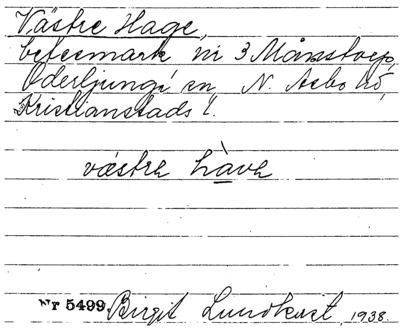 Västre Hage,
betesmark ni 3 Månstorp,
Oderljunga sn, N. Åsbo hd,
Kristianstads l.
västrə hàvə
Nr 5499 Birgit Lundkvist, 1938.